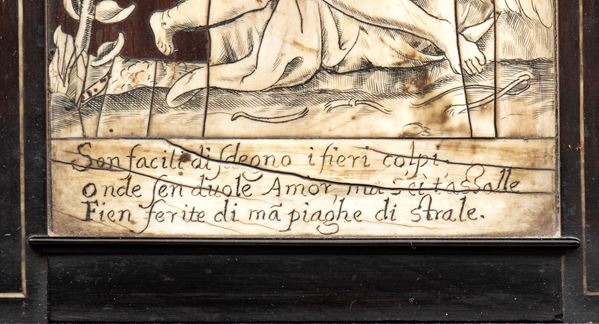 Son facili di ſdegno i fieri colpi
onde ſen duole Amor, ma s'ei t'aſſalle
Fien ferite di mā piaghe di ſtrale.